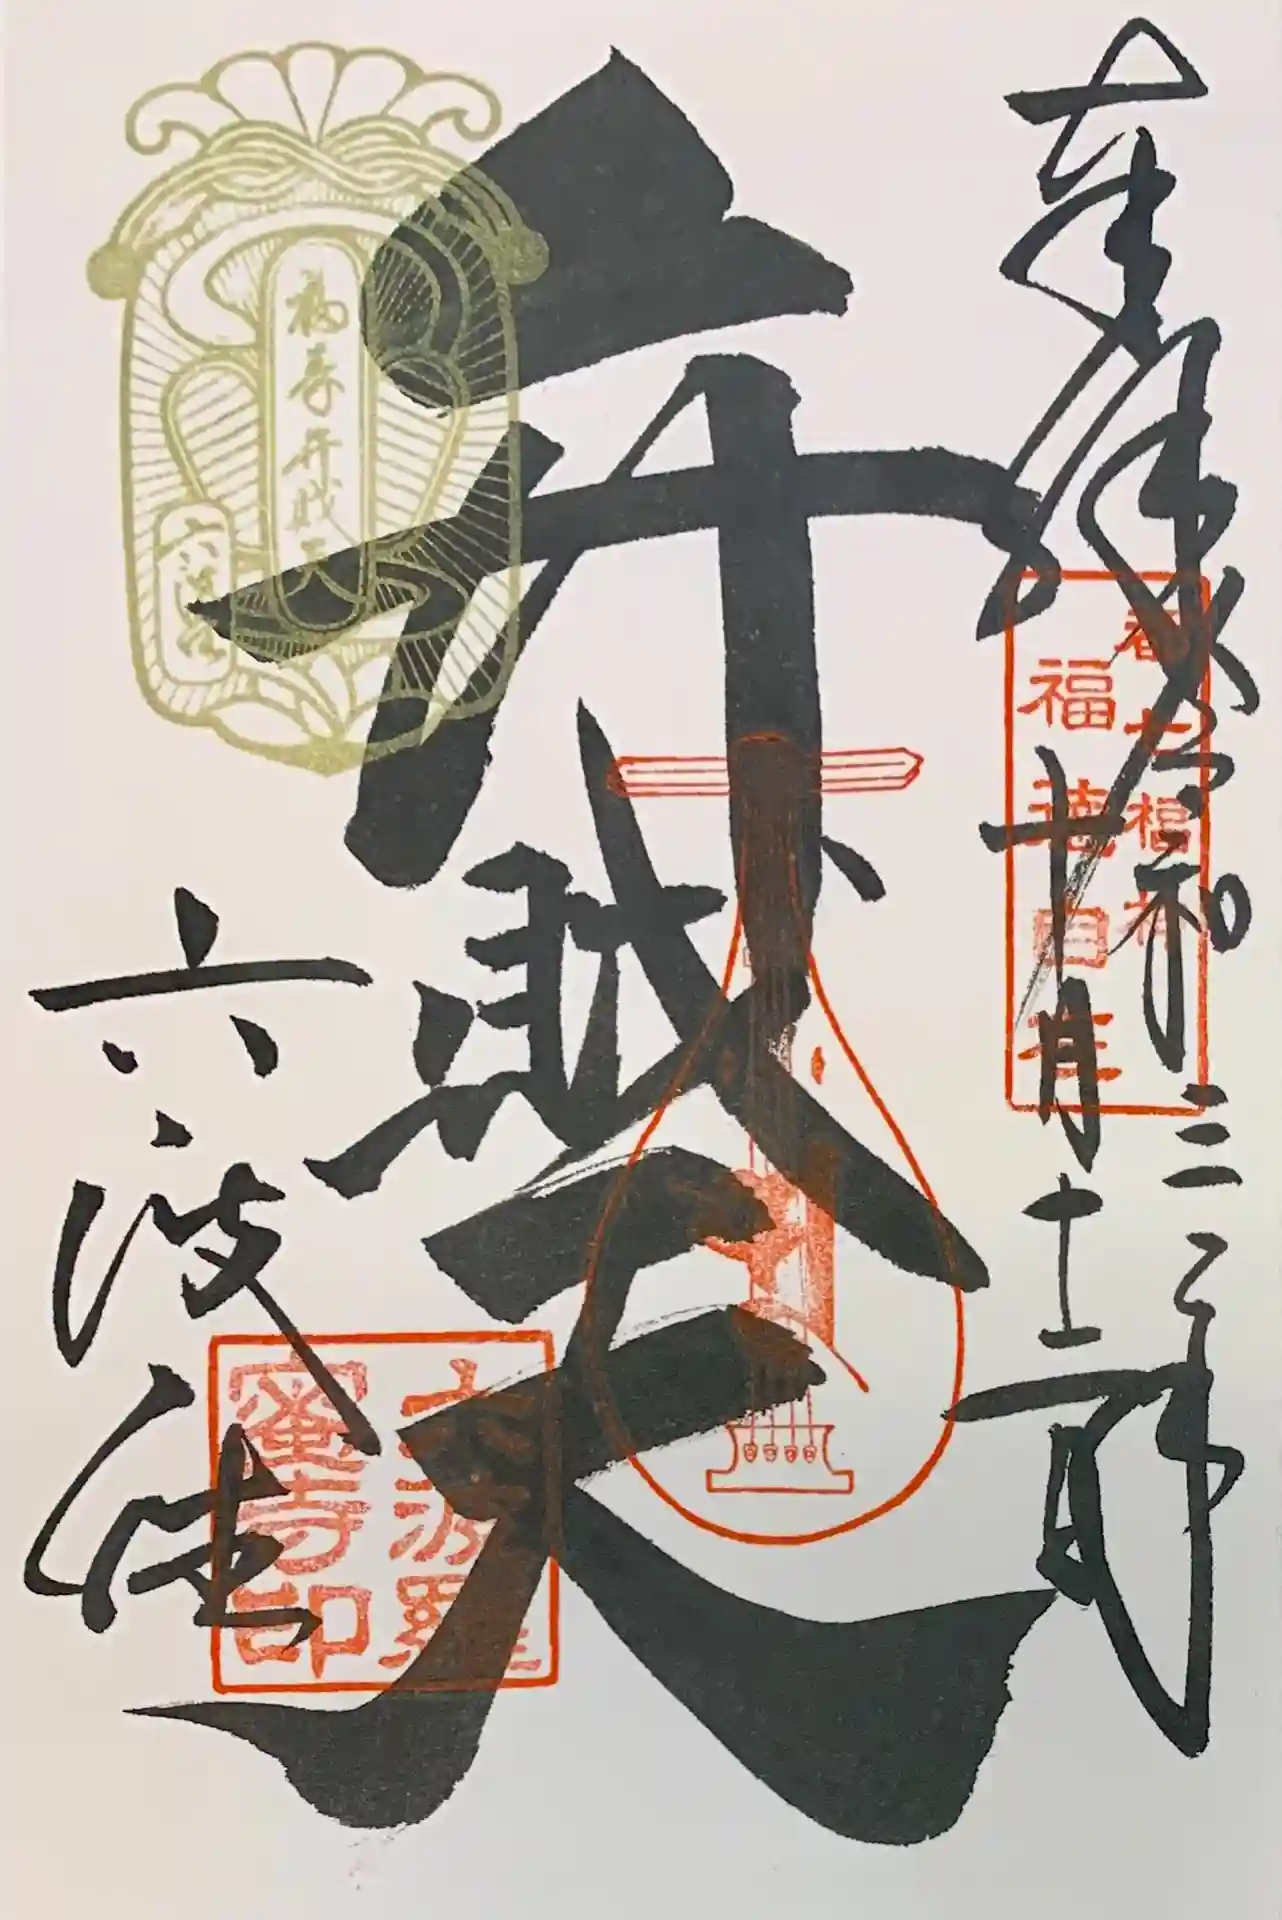 奉拝
令和三年
十月十二日
都七福神
福徳自在
弁財天
福寿弁財天
六波
六波羅
蜜寺印